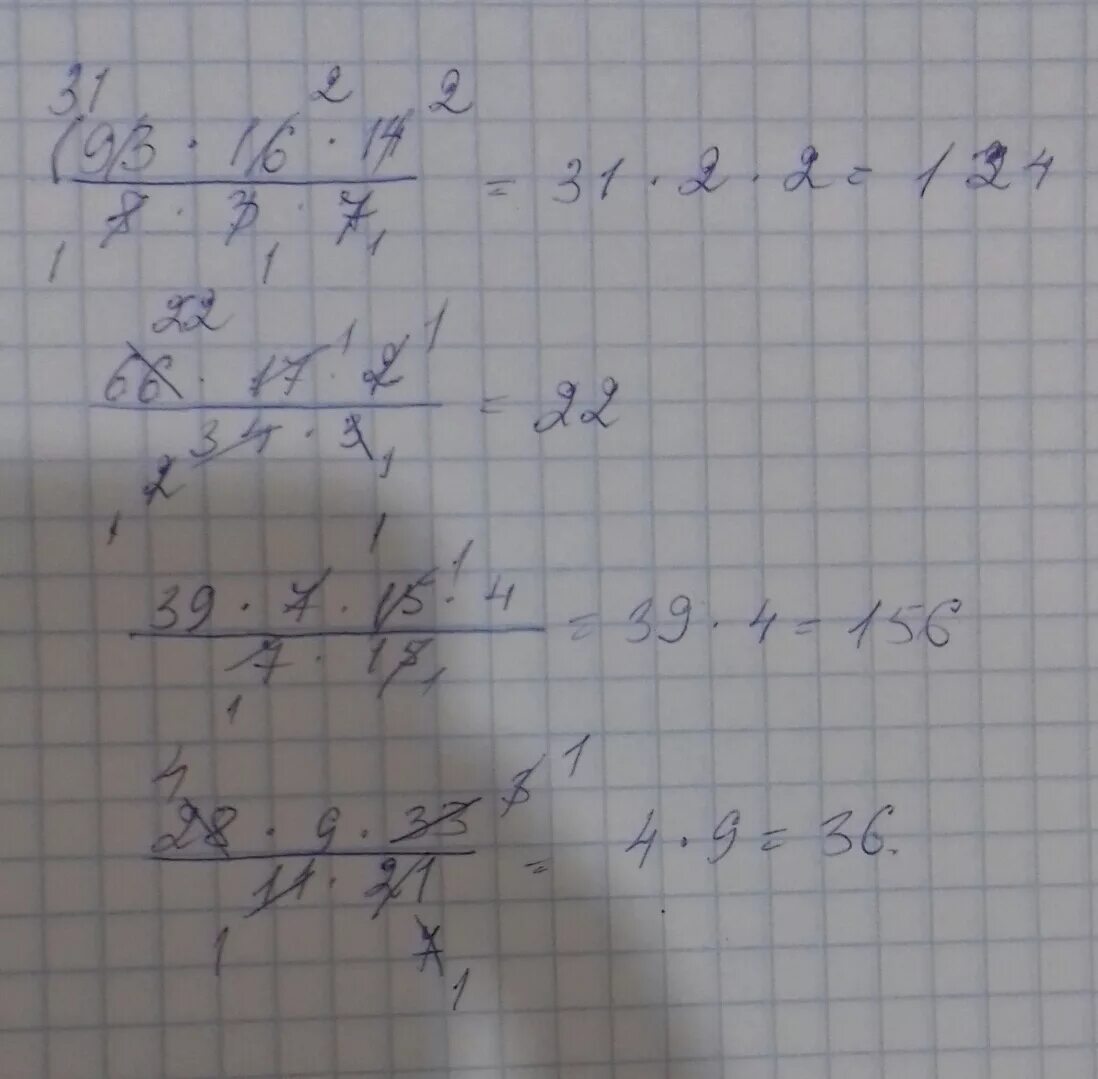 31 2 2
(93 · 16 · 14
8 · 3 · 7 = 31 · 2 · 2 = 124
1 1 1
22 1 1
66 · 17 · 2
34 · 3 = 22
2 1
1 1 1
39 · 7 · 15 · 4
7 · 15 = 39 · 4 = 156
1 1
4 3 1
28 · 9 · 33
11 · 21 = 4 · 9 = 36.
1 7 1